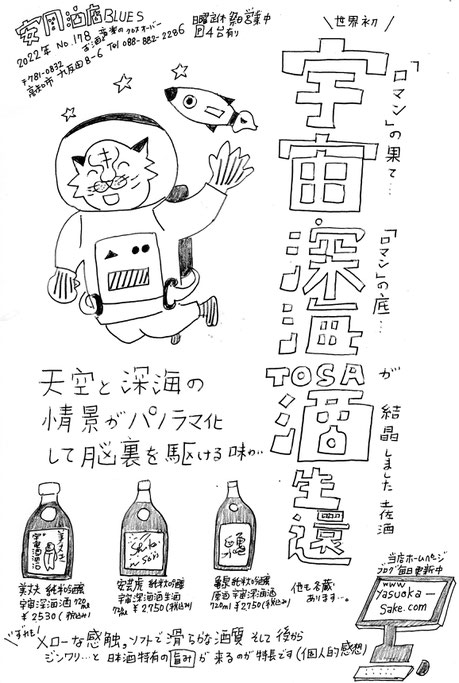 安岡酒店BLUES
2022年 No.178 お酒と音楽のクロスオーバー
〒781-0832
高知市九反田8-6 Tel 088-882-2286
日曜店休 祭日営業中
P 4台有り
世界初
「ロマン」の果て…
「ロマン」の底…が
結晶しました 土佐酒
宇宙・深海
TOSA
酒生還
天空と深海の
情景がパノラマ化
して脳裏を駆ける味わい
美丈夫 純米吟醸
宇宙深海酒 720ml
¥2530(税込み)
安芸虎 純米吟醸
宇宙深海酒
720ml ¥2750(税込み)
亀泉 純米吟醸
原酒 宇宙深海酒
720ml ¥2750(税込み)
他も各蔵
あります…。
当店ホームページ
ブログ毎日更新中
www
Yasuoka-
Sake.com
いずれも
メローな感触。ソフトで滑らかな酒質 そして 後から
ジンワリ…と 日本酒特有の 旨み が 来るのが特長です(個人的感想)